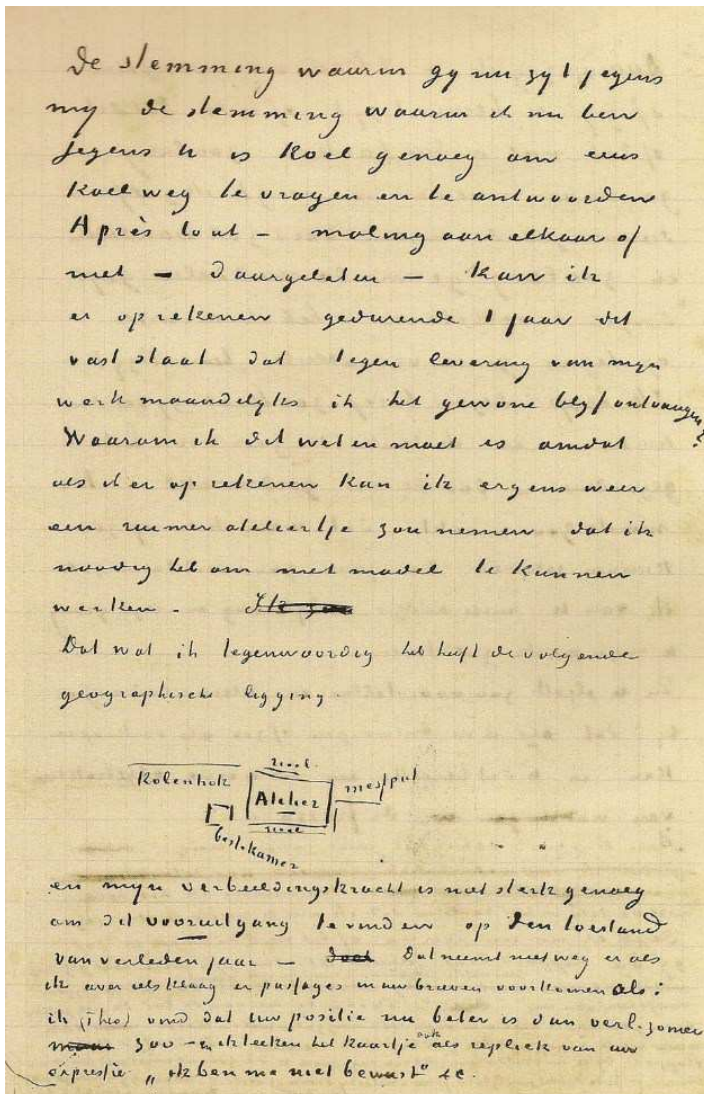 De stemming waarin gy nu zyt jegens
my de stemming waarin ik nu ben
jegens u is koel genoeg om eens
koelweg te vragen en te antwoorden
Après tout – maling aan elkaar of
niet – daargelaten – kan ik
er op rekenen gedurende 1 jaar dit
vast staat dat tegen levering van myn
werk maandelyks ik het gewone blyf ontvangen?
Waarom ik dit weten moet is omdat
als ik er op rekenen kan ik ergens weer
een ruimer ateliertje zou nemen dat ik
noodig heb om met model te kunnen
werken – Ik zou
Dat wat ik tegenwoordig heb heeft de volgende
geographische ligging.
riool
Kolenhok
Atelier
mestput
riool
bestekamer
en myn verbeeldingskracht is niet sterk genoeg
om dit vooruitgang te vinden op den toestand
van verleden jaar – Dat neemt niet weg er als
ik over iets klaag er passages in uw brieven voorkomen als:
ik (Theo) vind dat uw positie nu beter is dan verl. zomer
zoo – ik teeken het kaartje ook als repliek van uw
expressie „ ik ben me niet bewust" &c.